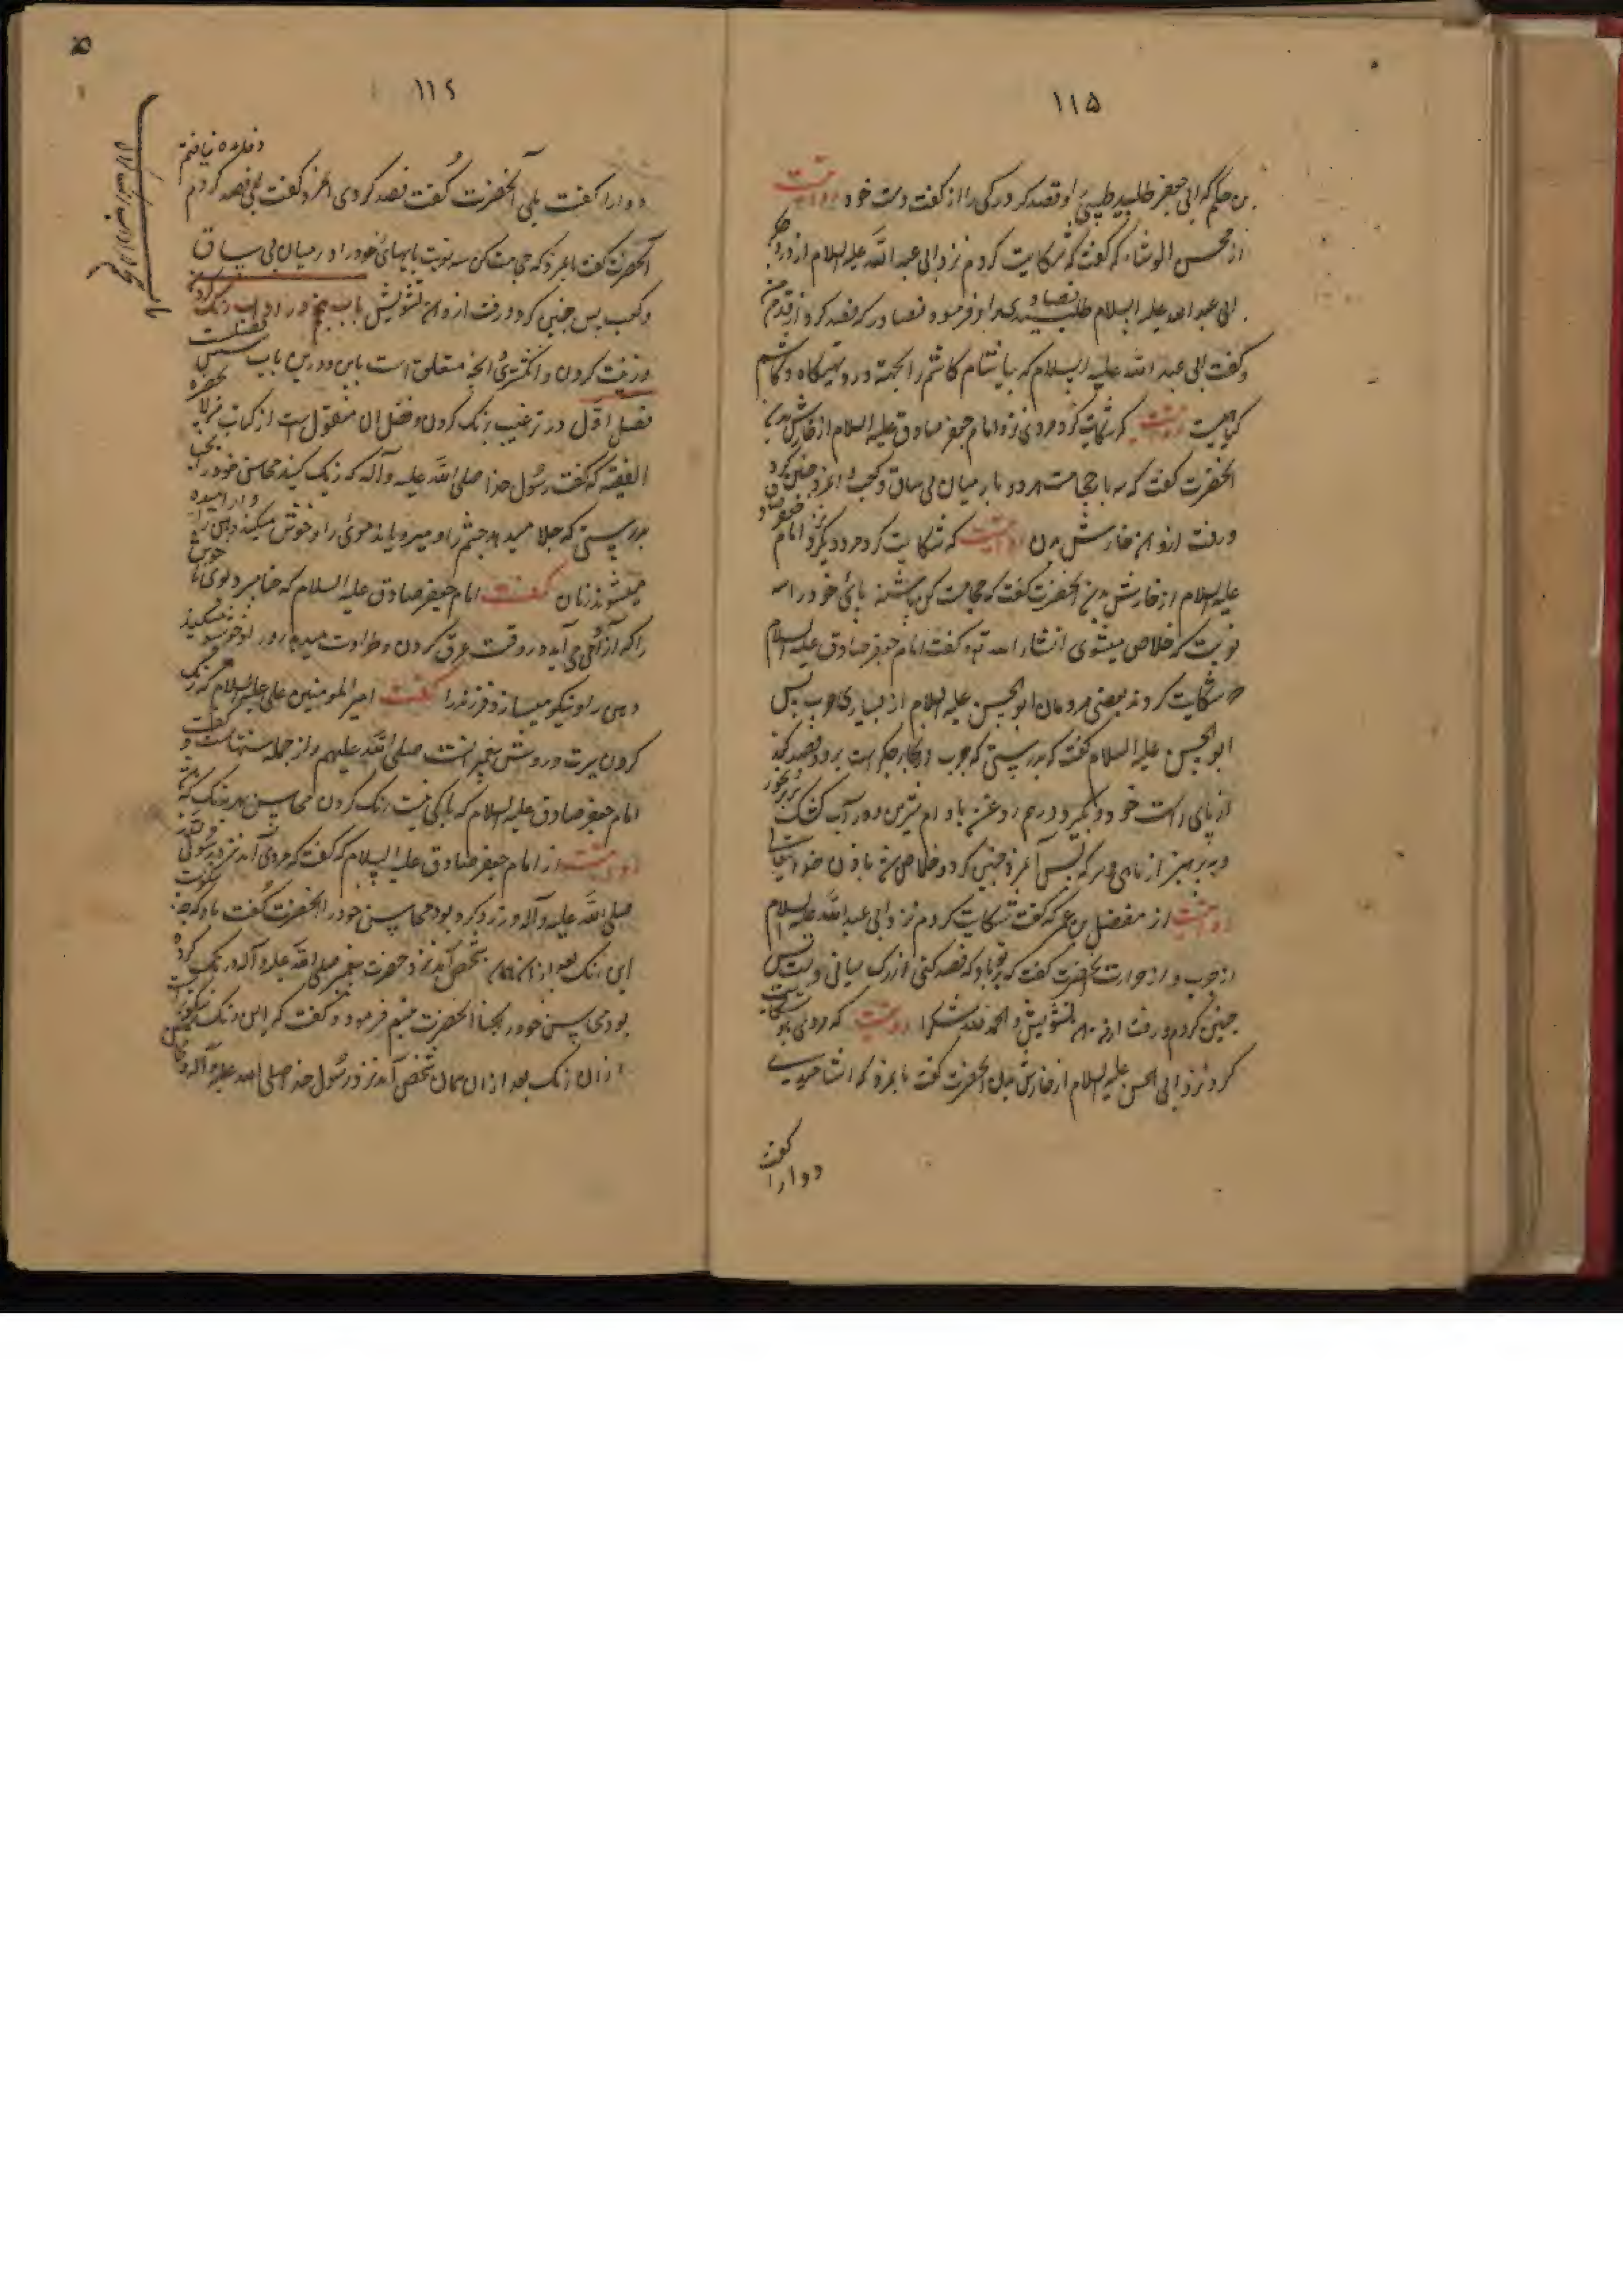 ۱۱۵
بن حکیم که ابی جعفر طلبید طبیبی او فصد کرد رکی را از کفت دست خود روایت
از محسن الوشاء که گفت که شکایت کردم نزد ابی عبد الله علیه السلام از درد جگر
ابی عبد الله علیه السلام طلبید فصاد را و فرموده فصاد را که فصد کرد از قدم من
و گفت ابی عبد الله علیه السلام که بیاشام کاشم را بجهة درد تهیگاه و کاشم
گیاهیست روایت که شکایت کرد مردی نزد امام جعفر صادق علیه السلام از خارش بدن
آنحضرت گفت که سه بار حجامت هر دو پا در میان پی ساق و کعب آنمرد چنین کرد
و رفت ازو آن خارش بدن روایت که شکایت کرد مرد دیگر نزد امام جعفر صادق
علیه السلام از خارش بدن آنحضرت گفت که حجامت کن پاشنه پائی خود را سه
نوبت که خلاص میشوی انشاء الله تع گفت امام جعفر صادق علیه السلام
شکایت کردند بعضی مردمان ابو الحسن علیه السلام از بسیاری جرب پس
ابو الحسن علیه السلام گفت که بدرستی که جرب از بخار جگر است برو و فصد کن
از پای راست خود و بگیر دو درهم روغن بادام شیرین در آب کشک بریز بخور
و بپرهیز از ماهی و سرکه پس آنمرد چنین کرد و خلاص شد باذن خدایتعالی
روایت از مفضل بن عمر که گفت شکایت کردم نزد ابی عبد الله علیه السلام
از جرب و از حرارت آنحضرت گفت که بر تو باد که فصد کنی از رگ میانی دست پس
چنین کردم و رفت از من همه تشویش و الحمد لله شکرا روایت که مردی شکایت
کرد نزد ابی الحسن علیه السلام از خارش بدن آنحضرت گفت بانمرد که آشامیدی
دوا را گفت
۱۱۶
دوا را گفت بلی آنحضرت گفت فصد کردی آنمرد گفت بلی فصد کردم و فایده نیافتم
آنحضرت گفت بانمرد که حجامت کن سه نوبت پایهائی خود را در میان پی ساق
و کعب پس چنین کرد و رفت ازو آن تشویش باب پنجم در آداب رنگ کردن
و زینت کردن و انگشتری و آنچه متعلق است باین و درین باب فصلست
فصل اول در ترغیب برنگ کردن و فضل آن منقول است از کتاب من لا یحضره
الفقیه که گفت رسول خدا صلی الله علیه و آله که رنگ کنید محاسن خود را بحنا
بدرستی که جلا میدهد چشم را و میرویاند موئی را و خوش میکند و آرامیده
میشوند زنان گفت امام جعفر صادق علیه السلام که حنا میبرد بوی ناخوش
را که از آدمی می آید در وقت عرق کردن و طراوت میدهد رو را و خوشبو میکند
دهن را و نیکو میسازد فرزند را گفت امیر المومنین علی علیه السلام که رنگ
کردن سیرت و روش پیغمبرانست صلی الله علیهم و از جمله سنتهاست و گفت
امام جعفر صادق علیه السلام که باکی نیست رنگ کردن محاسن
روایت از امام جعفر صادق علیه السلام که گفت که مردی آمد نزد رسول
صلی الله علیه و آله و زرد کرده بود محاسن خود را آنحضرت گفت باو که چه نیکوست
این رنگ بعد از آن شخصی آمد نزد حضرت پیغمبر صلی الله علیه و آله و رنگ کرده
بود محاسن خود را بحنا آنحضرت تبسم فرمود و گفت که این رنگ نیکوتر است
از آن رنگ بعد از آن همان شخص آمد نزد رسول خدا صلی الله علیه و آله و